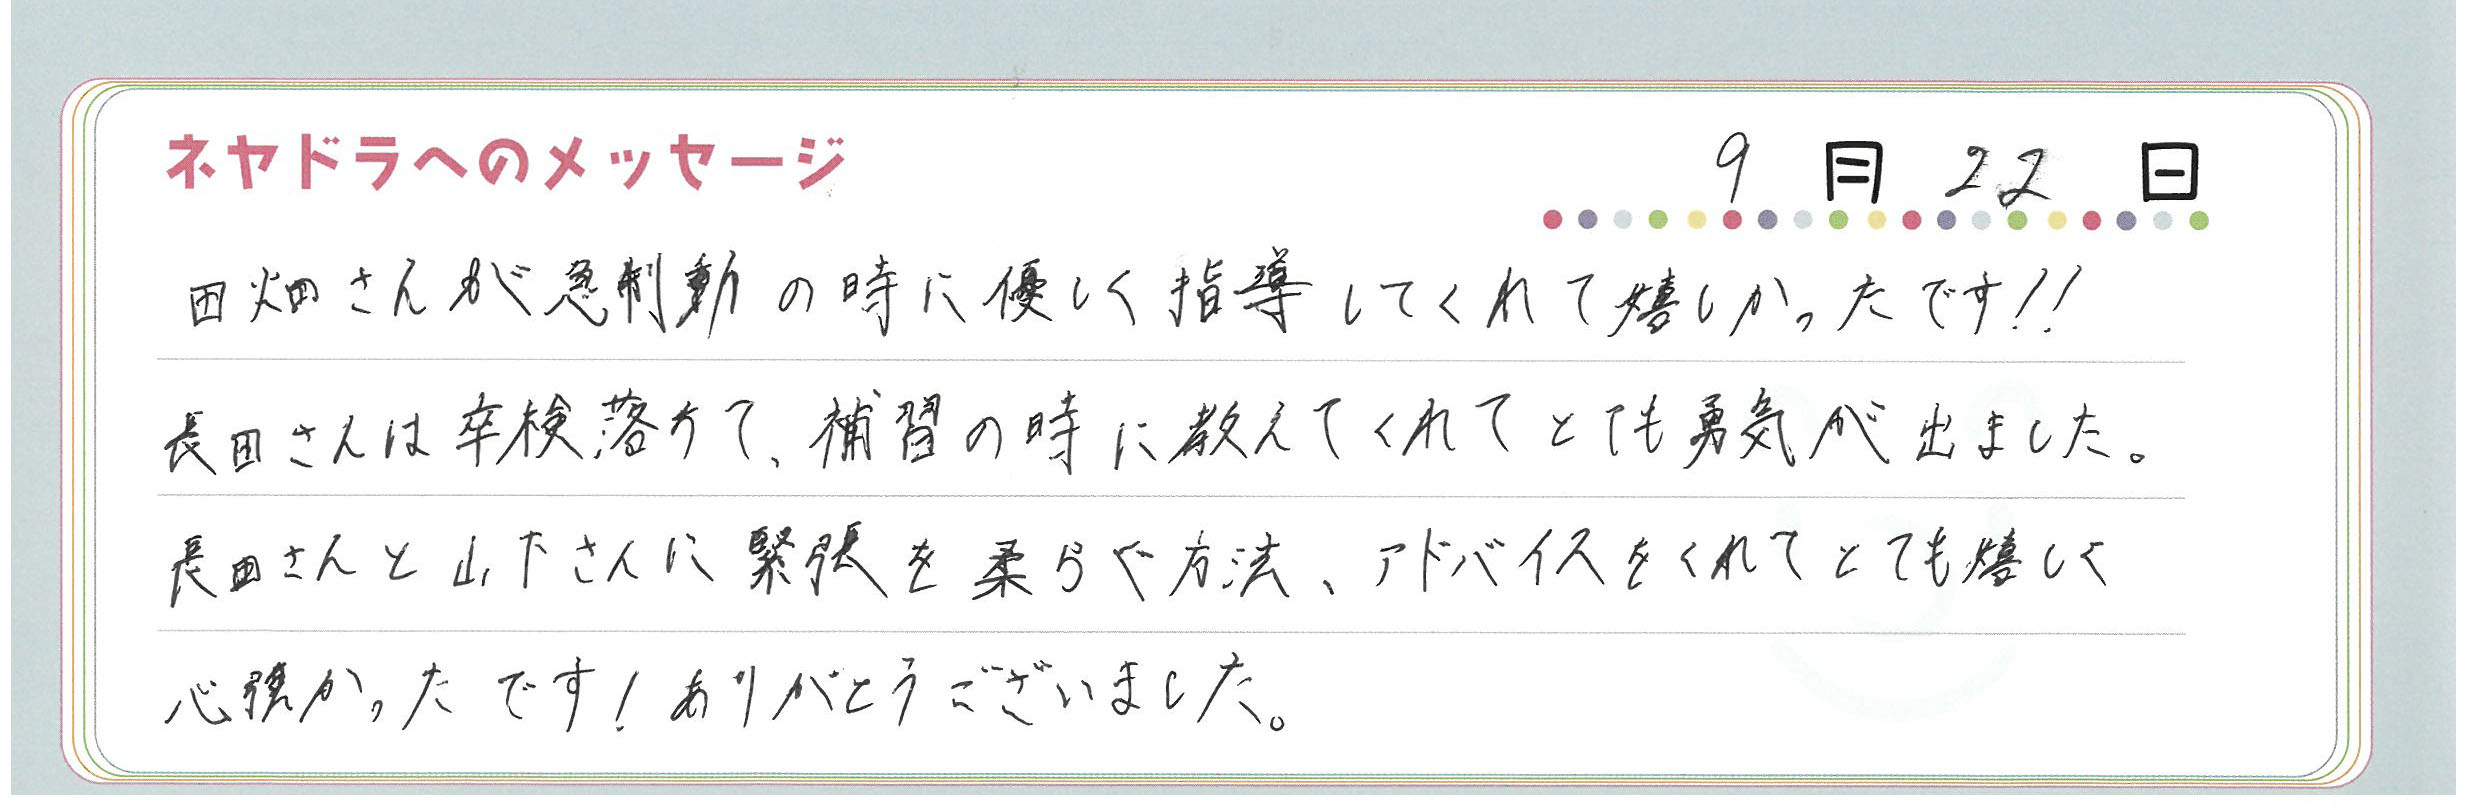 ネヤドラへのメッセージ
9月22日
田畑さんが急制動の時に優しく指導してくれて嬉しかったです!!
長田さんは卒検落ちて、補習の時に教えてくれてとても勇気が出ました。
長田さんと山下さんに緊張を柔らぐ方法、アドバイスをくれてとても嬉しく
心強かったです!ありがとうございました。